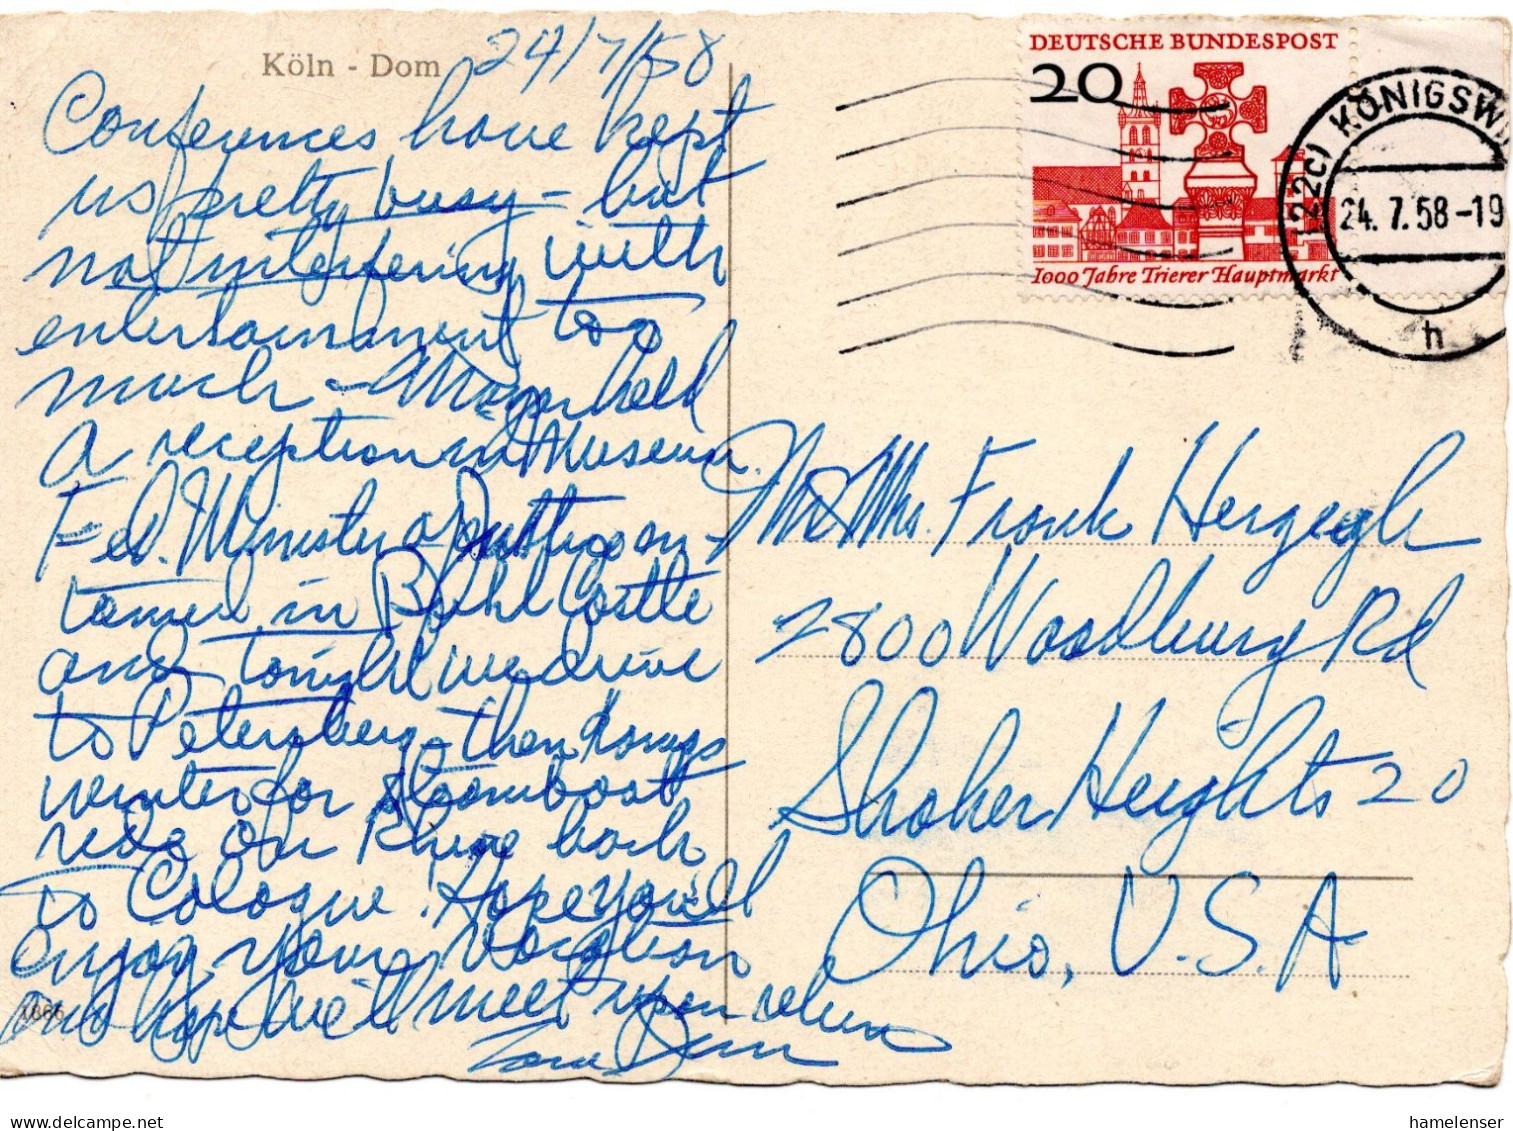 Köln - Dom
24/7/58
Conferences have kept
us pretty busy - but
not interfering with
entertainment too
much - Mayor held
a reception in Museum.
Fed. Minister of
tained in Castle
and tonight we drive
to Petersberg - then Königs
winter for steamboat
ride on Rhine back
to Cologne. Hope you'll
enjoy your vacation
and hope we'll meet upon return
Love
1866
DEUTSCHE BUNDESPOST
20
1000 Jahre Trierer Hauptmarkt
(22c) KÖNIGSWI
24.7.58-19
h
Mr & Mrs. Frank Hergegh
2800 Woodbury Rd
Shaker Heights 20
Ohio, U.S.A
hamelenser